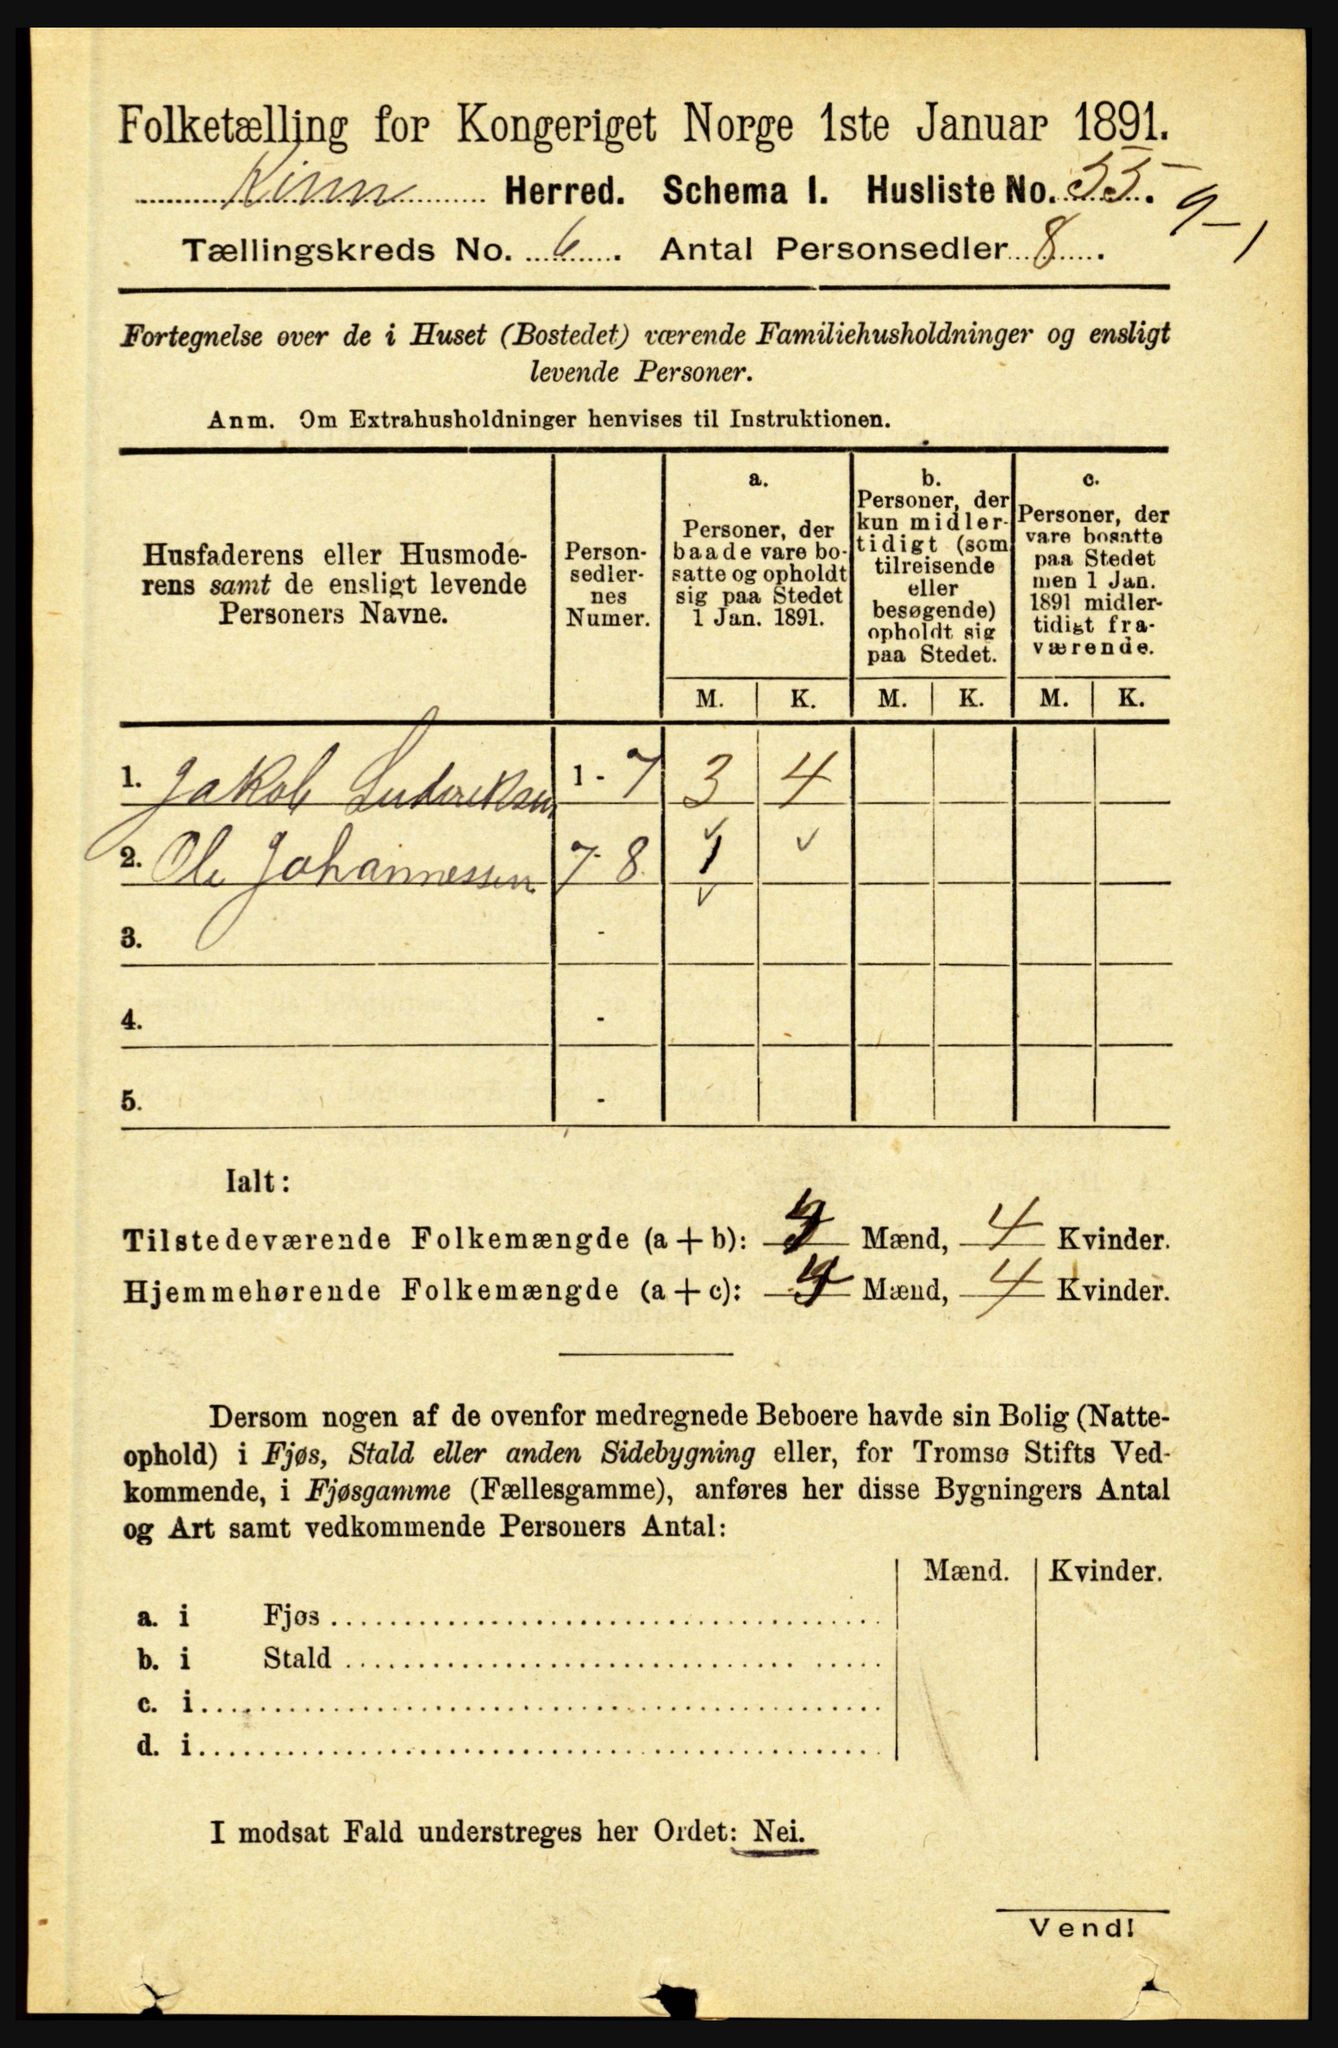 Folketælling for Kongeriget Norge 1ste Januar 1891.
Kinn Herred. Schema I. Husliste No. 55.
9-1
Tællingskreds No. 6. Antal Personsedler 8.
Fortegnelse over de i Huset (Bostedet) værende Familiehusholdninger og ensligt
levende Personer.
Anm. Om Extrahusholdninger henvises til Instruktionen.
Husfaderens eller Husmode-
rens samt de ensligt levende
Personers Navne.
Person-
sedler-
nes
Numer.
a.
Personer, der
baade vare bo-
satte og opholdt
sig paa Stedet
1 Jan. 1891.
b.
Personer, der
kun midler-
tidigt (som
tilreisende
eller
besøgende)
opholdt sig
paa Stedet.
c.
Personer, der
vare bosatte
paa Stedet
men 1 Jan.
1891 midler-
tidigt fra-
værende.
M. K. M. K. M. K.
1. Jakob Luderiksen 1 - 7 3 4
2. Ole Johannessen 7 - 8 1
3. -
4. -
5. -
Ialt:
Tilstedeværende Folkemængde (a + b): 4 Mænd, 4 Kvinder.
Hjemmehørende Folkemængde (a + c): 4 Mænd, 4 Kvinder.
Dersom nogen af de ovenfor medregnede Beboere havde sin Bolig (Natte-
ophold) i Fjøs, Stald eller anden Sidebygning eller, for Tromsø Stifts Ved-
kommende, i Fjøsgamme (Fællesgamme), anføres her disse Bygningers Antal
og Art samt vedkommende Personers Antal:
Mænd. Kvinder.
a. i Fjøs
b. i Stald
c. i
d. i
I modsat Fald understreges her Ordet: Nei.
Vend!